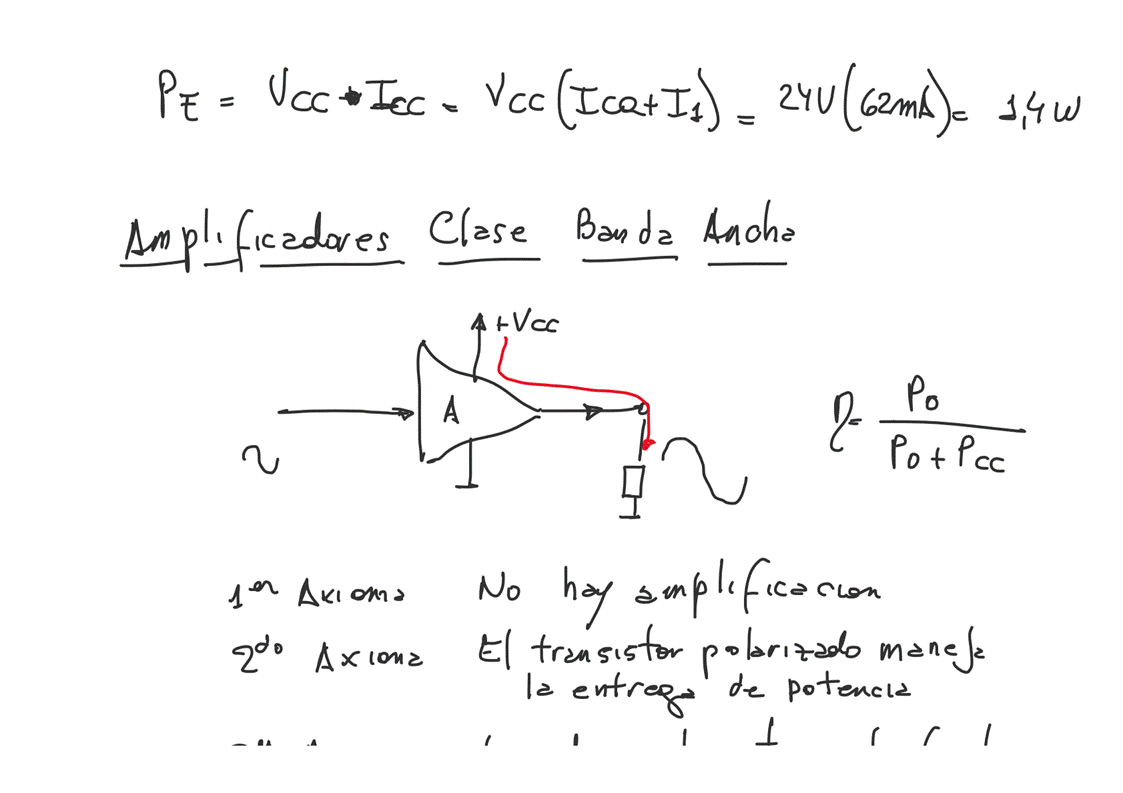 PE = VCC * ICC = VCC (ICQ + I1) = 24V (62mA) = 1,4 W
Amplificadores Clase Banda Ancha
+Vcc
A
η = Po / Po + Pcc
1er Axioma No hay amplificacion
2do Axioma El transistor polarizado maneja
la entrega de potencia